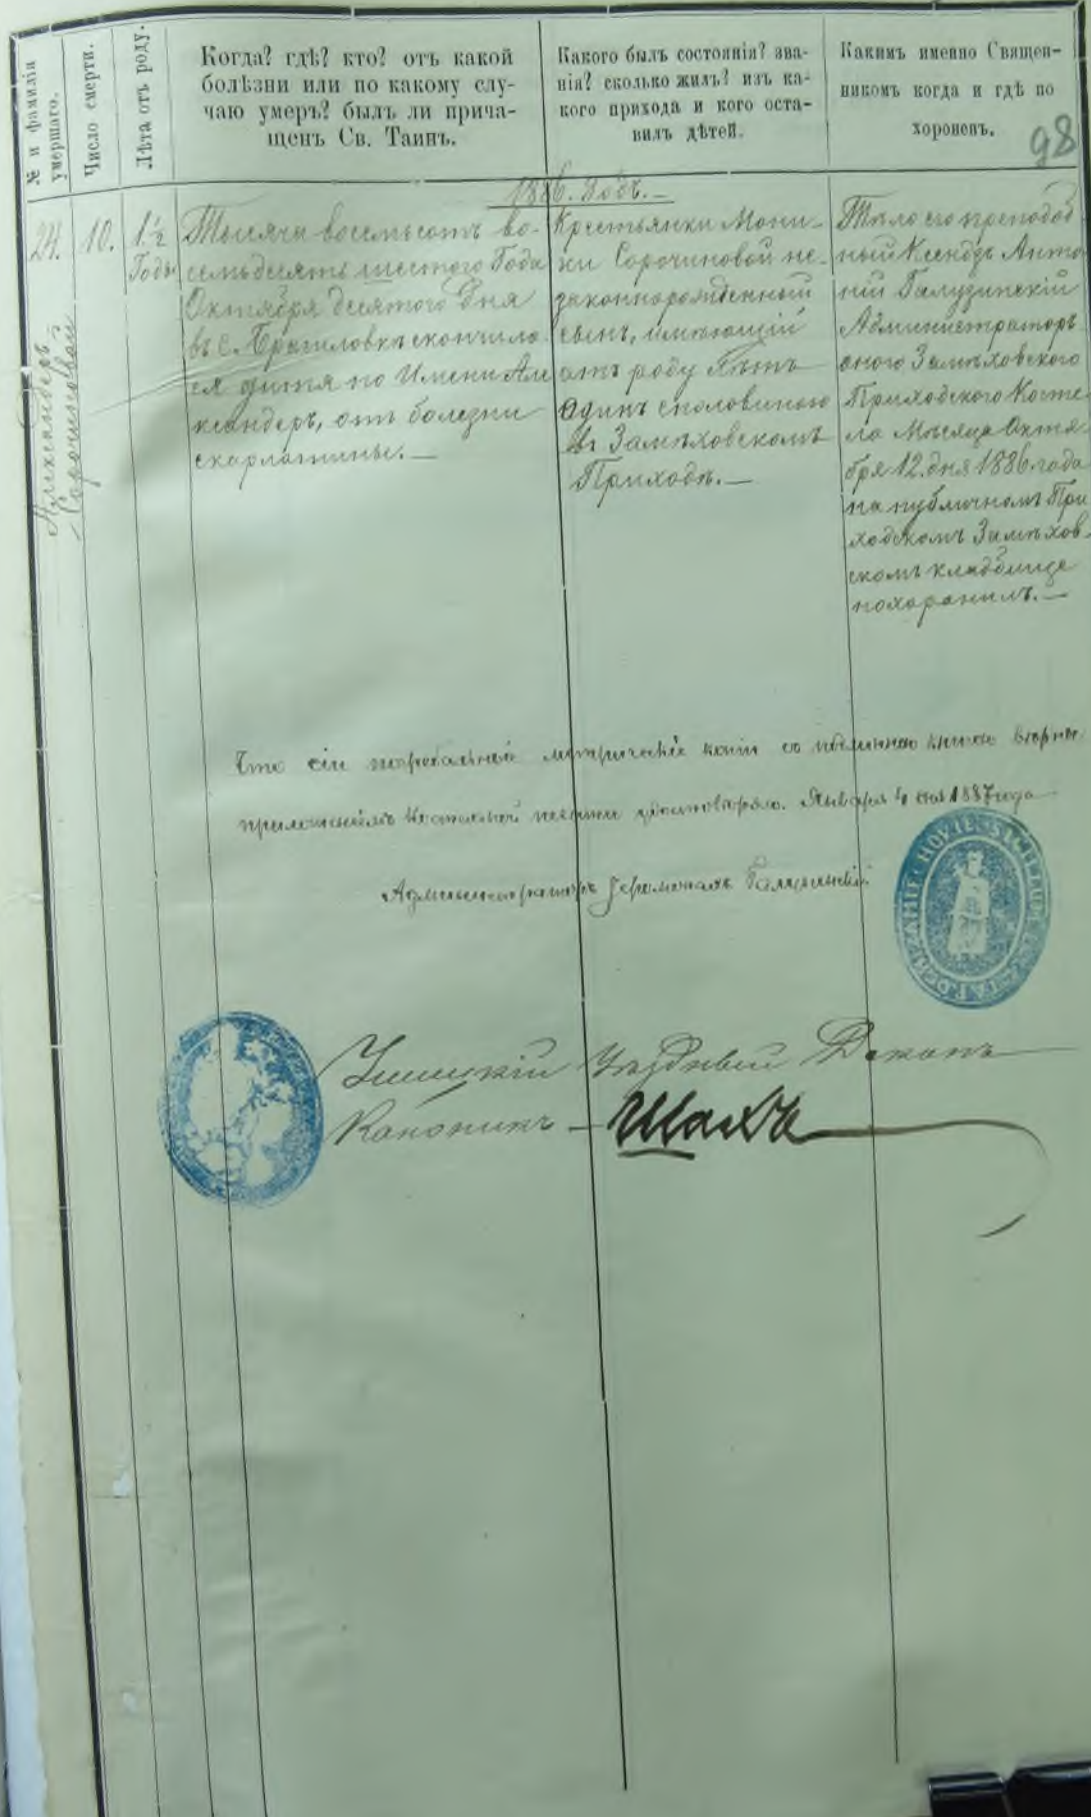 № и фамилія
умершаго.
Число смерти.
Лѣта отъ роду.
Когда? гдѣ? кто? отъ какой
болѣзни или по какому слу-
чаю умеръ? былъ ли прича-
щенъ Св. Таинъ.
Какого былъ состоянія? зва-
нія? сколько жилъ? изъ ка-
кого прихода и кого оста-
вилъ дѣтей.
Какимъ именно Священ-
никомъ когда и гдѣ по
хороненъ.
98
1886. Годъ.—
24.
Александеръ
Сорочиновой
10.
1½
Годъ
Тысяча восемьсотъ во-
семьдесятъ шестого Года
Октября десятого Дня
въ с. скончило
ся дитя по Имени Але
ксандеръ, отъ болезни
скарлатины.—
Крестьянки Мони-
ки Сорочиновой не-
законнорожденный
сынъ, имѣющій
отъ роду Лѣтъ
Одинъ споловиною
въ Замѣховскомъ
Приходѣ.—
Тѣло его преподоб
ный Ксендзъ Анто
ній Галузинскій
Администраторъ
оного Замѣховского
Приходского Косте
ла Мѣсяца Октя
бря 12. дня 1886. года
на публичномъ При
ходскомъ Замѣхов
скомъ кладбище
похоранилъ.—
Что сіи метрическіе копіи со книгою вѣрны
приложеніемъ Костельной печати удостовѣряю. Января 4 дня 1887 года
Администраторъ Іеромонахъ Галузинскій
Ушицкій Уѣздный Деканъ
Каноникъ — Шахъ